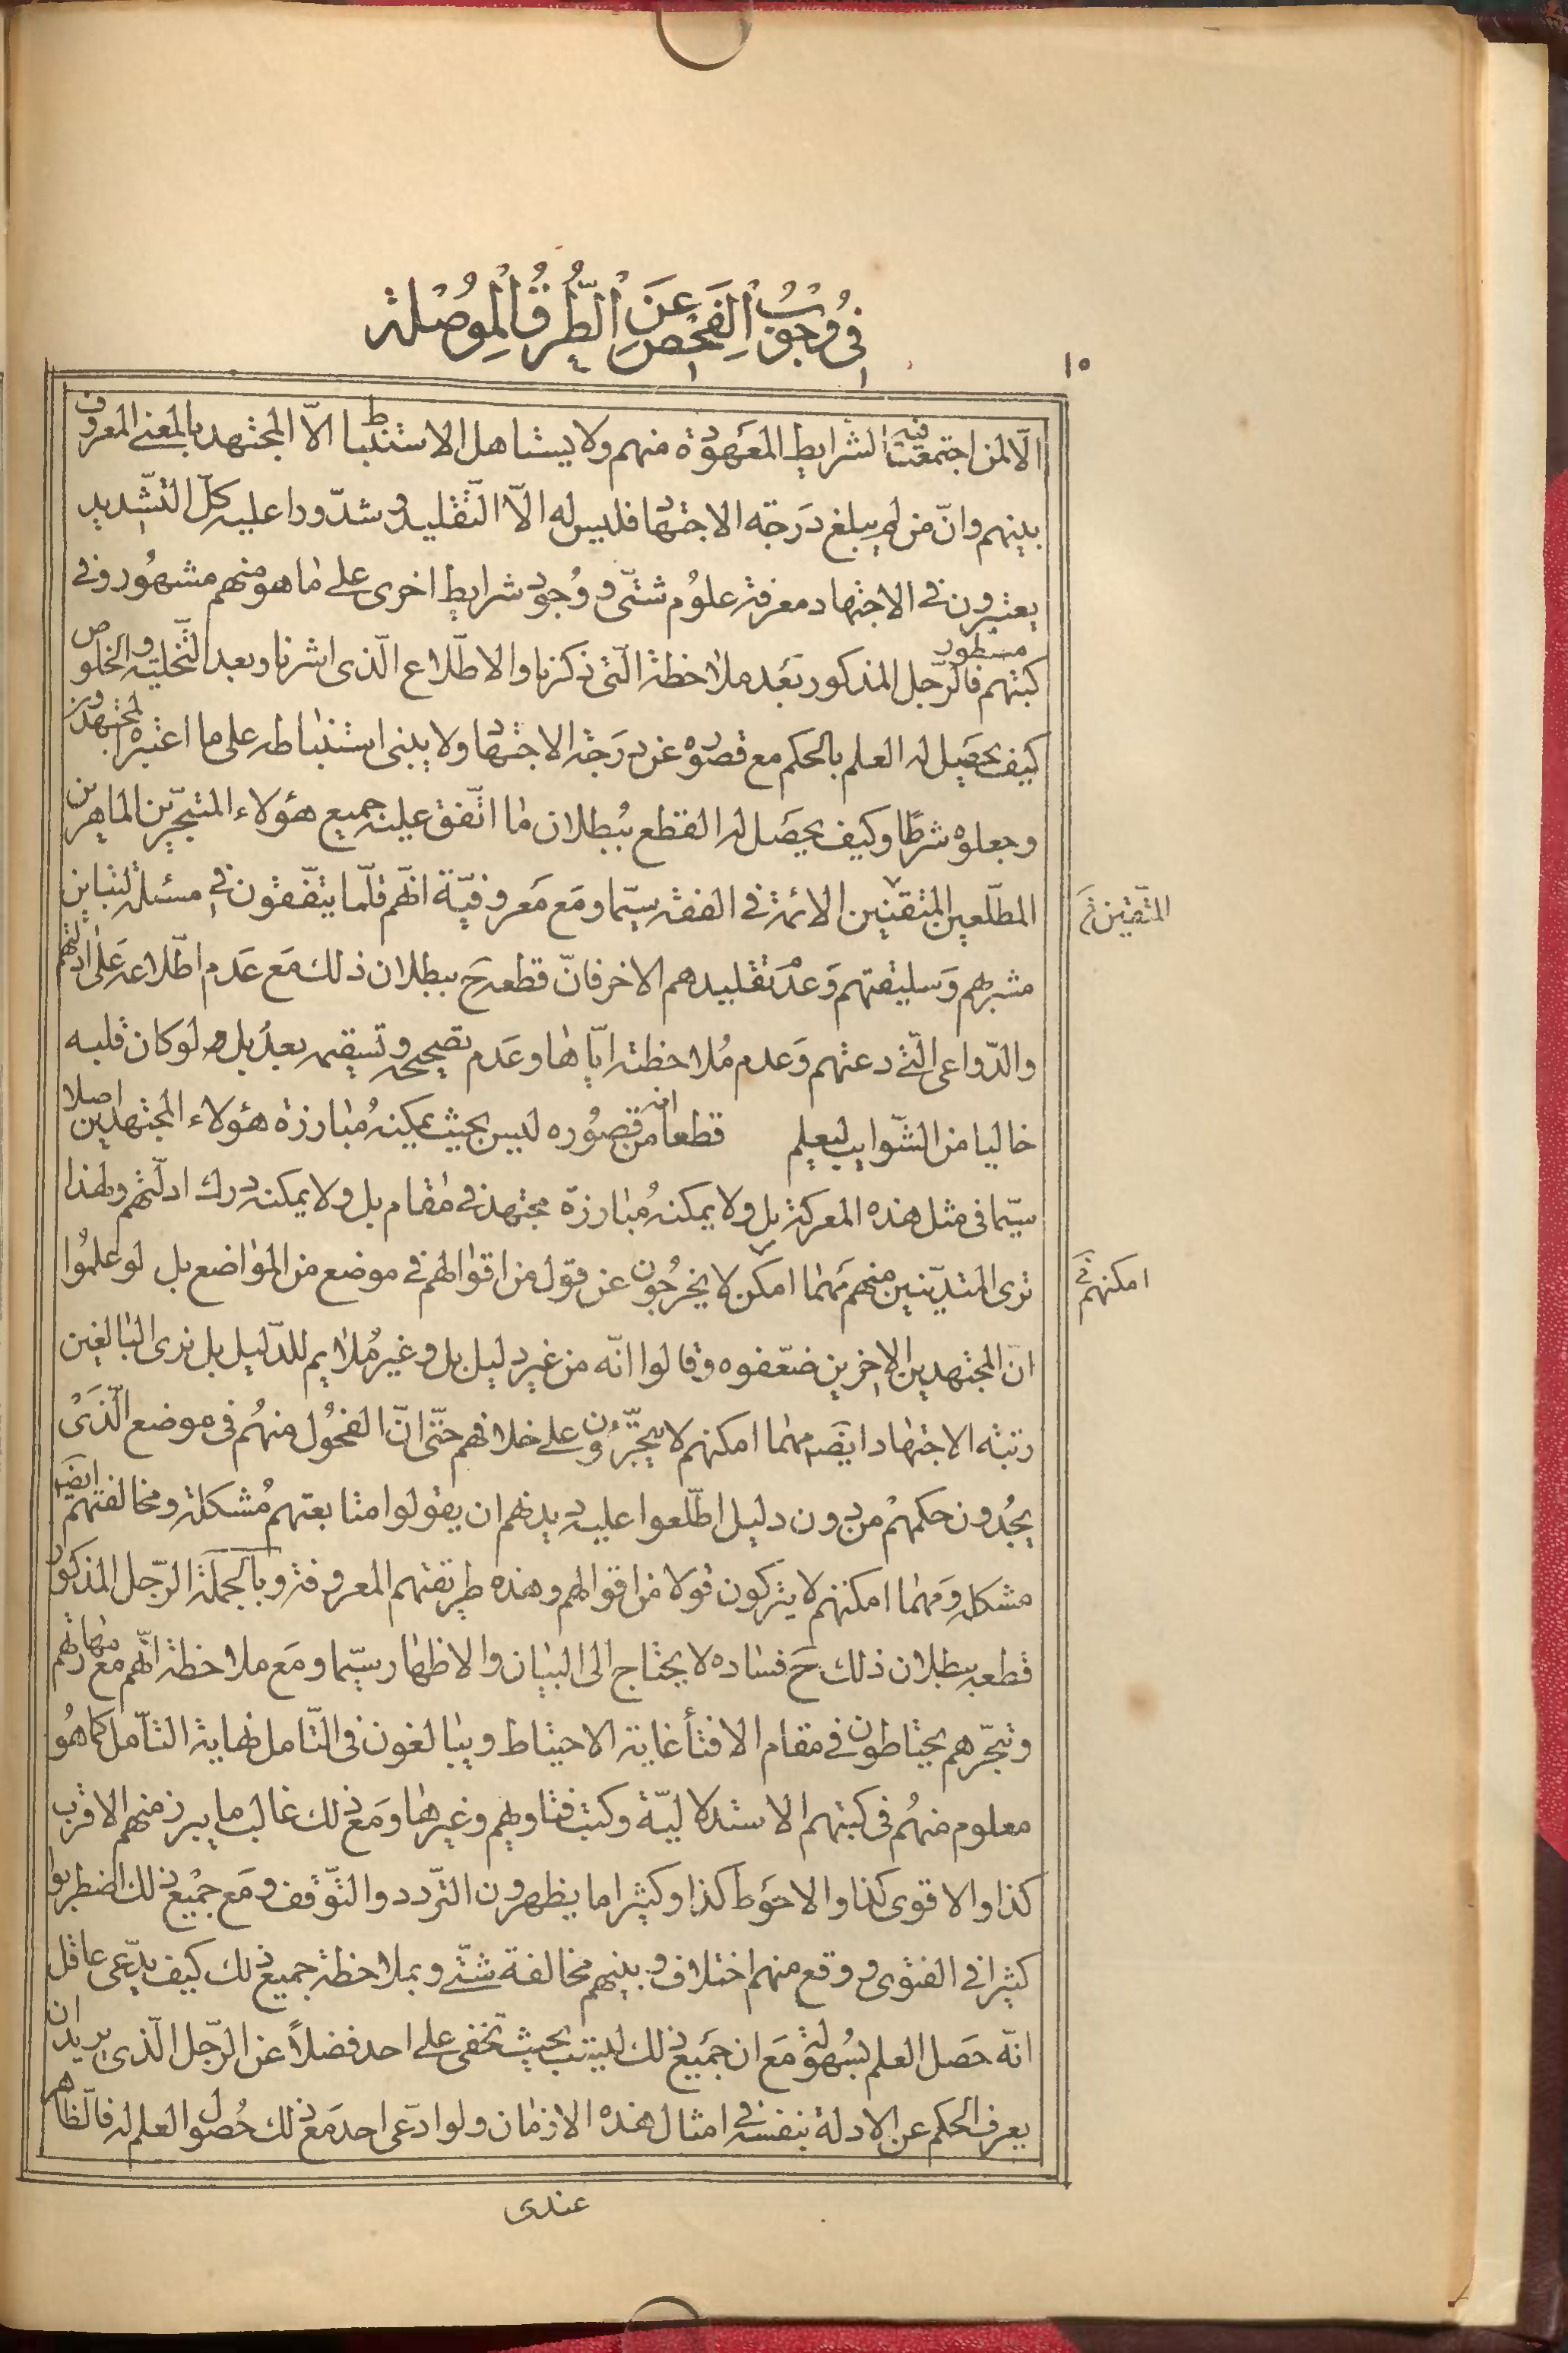 فی وجوب الفحص عن الطرق الموصلة
١٥
الّا لمن اجتمعت فيه الشرايط المعهودة منهم ولا يستاهل الاستنباط الّا المجتهد بالمعنى المعروف
بينهم وانّ من لم يبلغ درجة الاجتهاد فليس له الّا التقليد وشدّدوا عليه كلّ التشديد
يعتبرون فى الاجتهاد معرفة علوم شتّى ووجود شرايط اخرى على ما هو منهم مشهور وفى
كتبهم مسطور فالرّجل المذكور بعد ملاحظة الّتى ذكرنا والاطّلاع الّذى اشرنا وبعد التّخلية والخلوص
كيف يحصل له العلم بالحكم مع قصوره عن درجة الاجتهاد ولا يبنى استنباطه على ما اعتبره المجتهدون
وجعلوه شرطًا وكيف يحصل له القطع ببطلان ما اتّفق عليه جميع هؤلاء المتبحّرين الماهرين
المطّلعين المتقنين الائمة فى الفقه سيّما ومع معروفيّة انّهم قلّما يتّفقون فى مسئلة لتباين
المتّقين خ
مشربهم وسليقتهم وعدم تقليدهم الاخر فانّ قطعه ح ببطلان ذلك مع عدم اطّلاعه على ادلّتهم
والدّواعى الّتى دعتهم وعدم ملاحظته ايّاها وعدم تصحيحه وتسقيمه بعد بل ولو كان قلبه
خاليا من الشّوايب ليعلم قطعا انه من قصوره ليس بحيث يمكنه مبارزة هؤلاء المجتهدين اصلا
سيّما فى مثل هذه المعركة بل ولا يمكنه مبارزة مجتهد فى مقام بل ولا يمكنه درك ادلّتهم ولهذا
ترى المتديّنين منهم مهما امكن لا يخرجون عن قول من اقوالهم فى موضع من المواضع بل لو علموا
امكنهم خ
انّ المجتهدين الاخرين ضعّفوه وقالوا انّه من غير دليل بل وغير ملايم للدّليل بل نرى البالغين
رتبة الاجتهاد ايضا مهما امكنهم لا يتجرّءون على خلافهم حتّى انّ الفحول منهم فى موضع الّذى
يجدون حكمهم من دون دليل اطّلعوا عليه ديدنهم ان يقولوا متابعتهم مشكلة ومخالفتهم ايضا
مشكله ومهما امكنهم لا يتركون قولا من اقوالهم وهذه طريقتهم المعروفة وبالجملة الرّجل المذكور
قطعه ببطلان ذلك ح فساده لا يحتاج الى البيان والاظهار سيّما ومع ملاحظة انّهم مع مهارتهم
وتبحّرهم يحتاطون فى مقام الافتاء غاية الاحتياط ويبالغون فى التّامل نهاية التامّل كما هو
معلوم منهم فى كتبهم الاستدلاليّة وكتب فتاويهم وغيرها ومع ذلك غالب ما يبرز منهم الاقرب
كذا والاقوى كذا والاحوط كذا وكثيرا ما يظهرون التّردد والتّوقف ومع جميع ذلك اضطربوا
كثيرا فى الفتوى ووقع منهم اختلاف وبينهم مخالفة شتّى وبملاحظة جميع ذلك كيف يدّعى عاقل
انّه حصل العلم بسهولة مع ان جميع ذلك ليست بحيث تخفى على احد فضلاً عن الرّجل الّذى يريد ان
يعرف الحكم عن الادلة بنفسه فى امثال هذه الازمان ولو ادّعى احد مع ذلك حصول العلم له فالظاهر
عندى